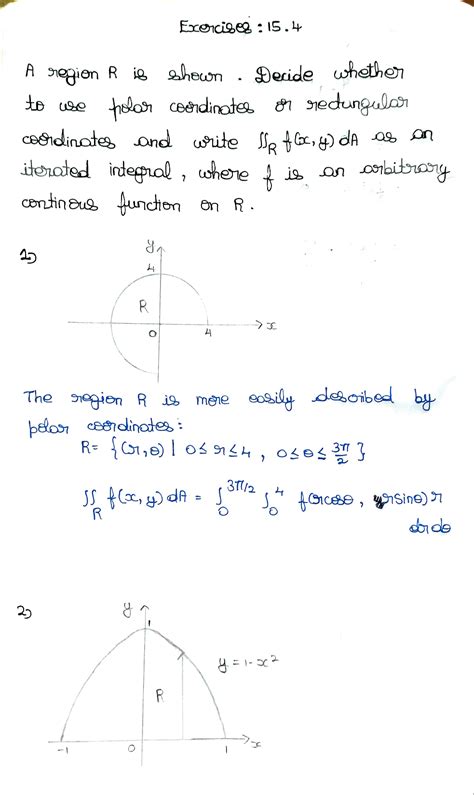 Exercises : 15.4
A region R is shown. Decide whether
to use polar coordinates or rectungular
coordinates and write ∬_R f(x,y) dA as an
iterated integral, where f is an arbitrary
continous function on R.
1)
y
4
R
0
4
x
The region R is more easily described by
polar coordinates:
R = {(r,θ) | 0≤r≤4, 0≤θ≤3π/2}
∬_R f(x,y) dA = ∫_0^{3π/2} ∫_0^4 f(rcosθ, rsinθ) r
dr dθ
2)
y
1
y = 1-x²
R
-1
0
1
x